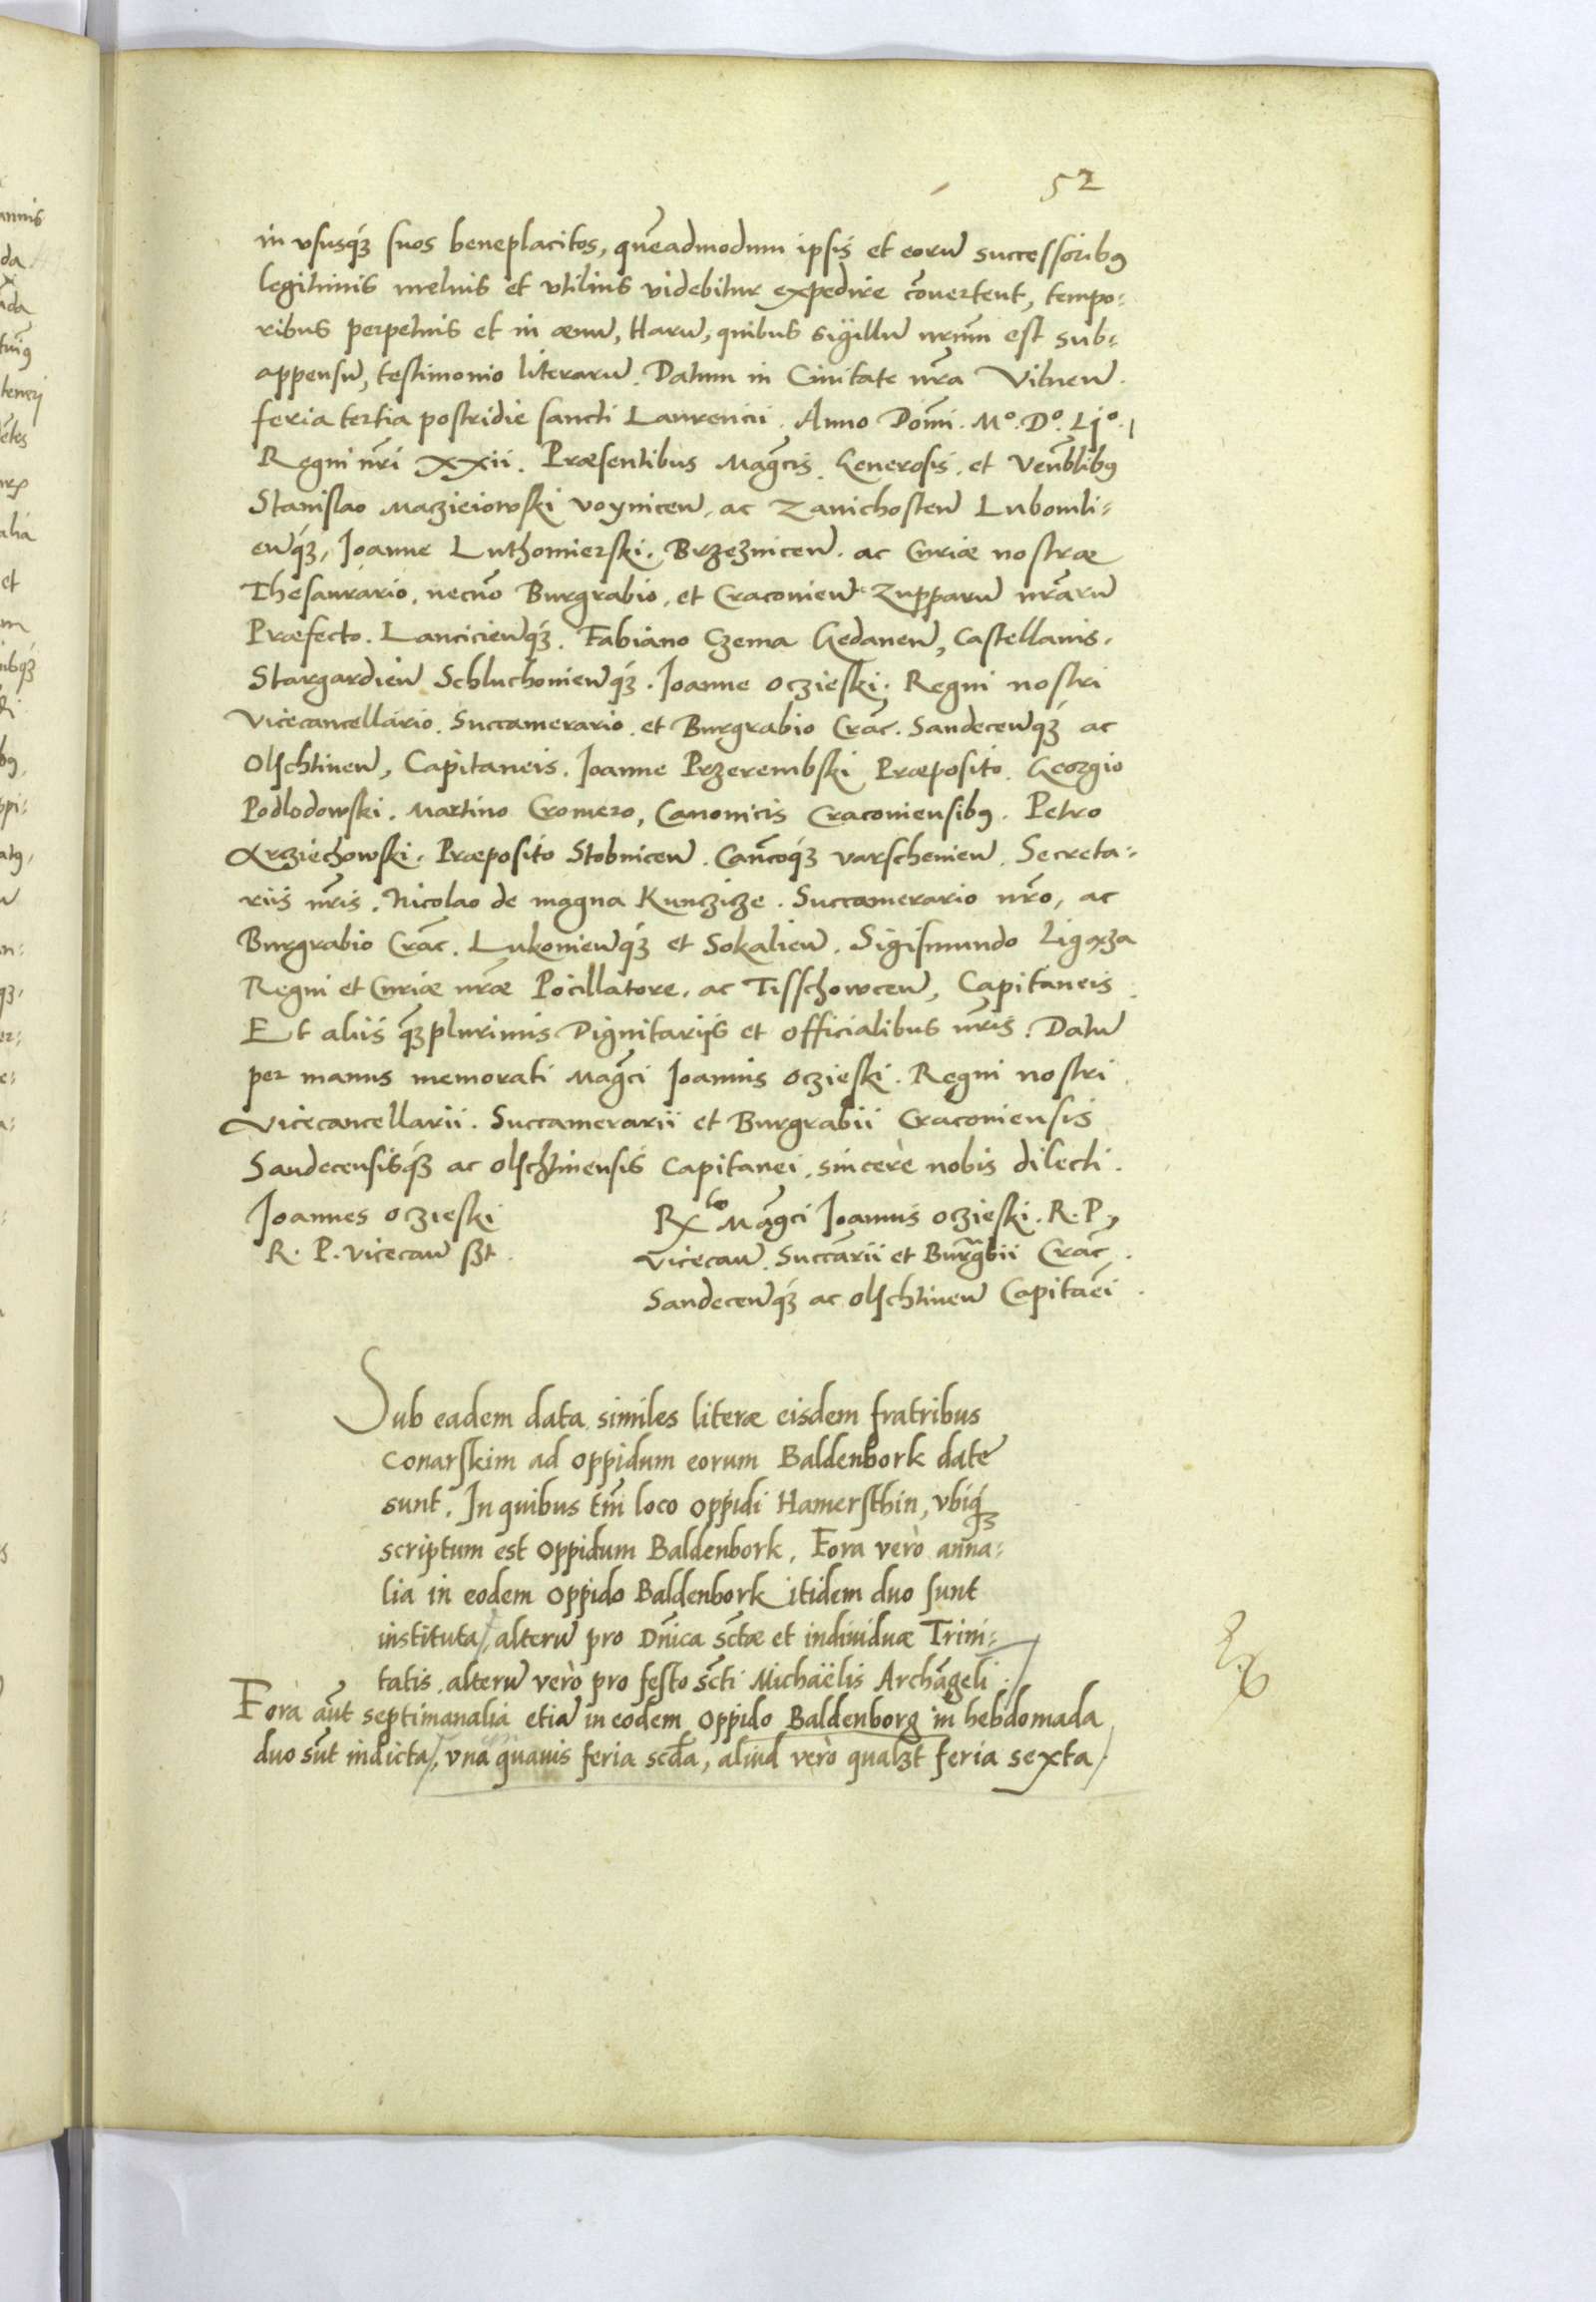 52
in vsusq3 suos beneplacitos, quēadmodum ipsis et eorū successorib9
legitimis melius et vtilius videbitur expedire cōuertent, tempo:
ribus perpetuis et in æuū, Harū, quibus sigillū nrūm est sub:
appensū, testimonio literarū. Datum in Ciuitate nrā Vilneñ.
feria tertia postridie sancti Laurencii. Anno Domī. Mº. Dº. Ljº.
Regni nrī XXii. Præsentibus Magcīs. Generosis. et Venblībus
Stanislao Maczieiowski Voyniceñ. ac Zawichosteñ Lubomli:
eñq3, Joanne Luthomierski. Brzezniceñ. ac Curiæ nostræ
Thesaurario. necnō Burgrabio. et Cracovieñ Zupparū nrārū
Præfecto. Lancicieñq3. Fabiano Czema Gedaneñ, Castellanis.
Stargardieñ Schluchonieñq3. Joanne Oczieski. Regni nostri
Vicecancellario. Succamerario. et Burgrabio Crac̄. Sandeceñq3 ac
Olschtineñ, Capitaneis. Joanne Przerembski Præposito. Georgio
Podlodowski. Martino Cromero, Canonicis Cracouiensib9. Petro
Arziechowski. Præposito Stobniceñ. Canc̄oq3 Varschenieñ. Secreta:
riis nrīs. Nicolao de magna Kunczicze. Succamerario nrō, ac
Burgrabio Crac̄. Lukouieñq3 et Sokalieñ. Sigismundo Ligęza
Regni et Curiæ nrǣ Pocillatore. ac Tisschowceñ, Capitaneis.
Et aliis q̄3plurimis Dignitariis et officialibus nrīs. Datū
per manus memorati Magcī Joannis Oczieski. Regni nostri
Vicecancellarii. Succamerarii et Burgrabii Cracouiensis
Sandecensisq3 ac Olschtinensis Capitanei. sincere nobis dilecti.
Joannes Oczieski
R. P. Vicecañ s3t.
Rlo Magcī Joannis Oczieski. R. P.
Vicecañ. Succārii et Burgbīi Crac̄.
Sandeceñq3 ac Olschtineñ Capitaēi.
Sub eadem data similes literæ eisdem fratribus
Conarskim ad oppidum eorum Baldenbork date
sunt. In quibus tm̄ loco oppidi Hamersthin, vbiq3
scriptum est oppidum Baldenbork. Fora verò anna:
lia in eodem oppido Baldenbork itidem duo sunt
instituta, alterū pro Dnīca sctǣ et indiuiduæ Trini:
tatis. alterū verò pro festo sctī Michaëlis Archāgeli.
Fora aūt septimanalia etiā in eodem oppido Baldenborg in hebdomada
duo sūt indicta, vna quauis feria scda, aliud verò qual3t feria sexta.